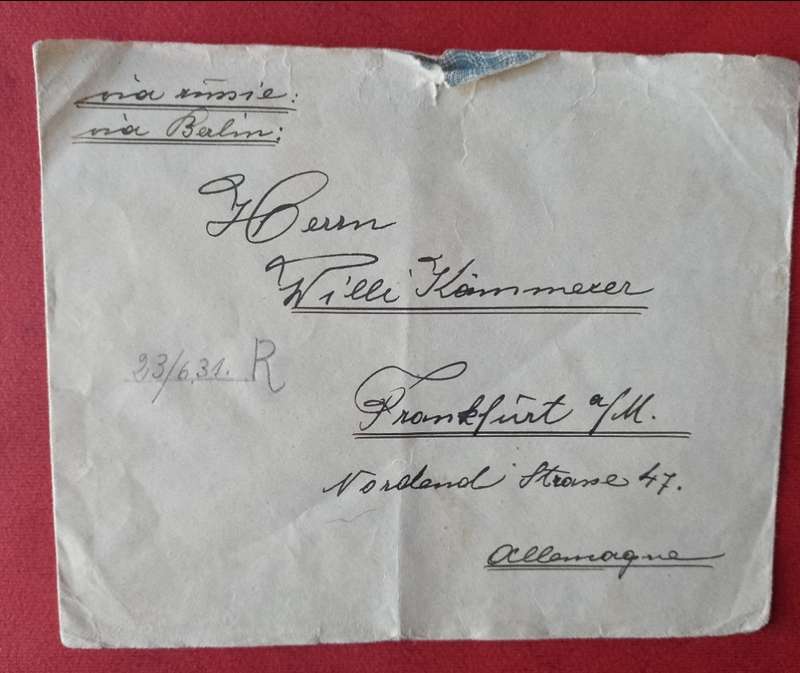 via rüssie:
via Berlin:
Herrn
Willi Kämmerer
23/6.31. R
Frankfürt a/M.
Nordend Strasse 47.
Allemagne